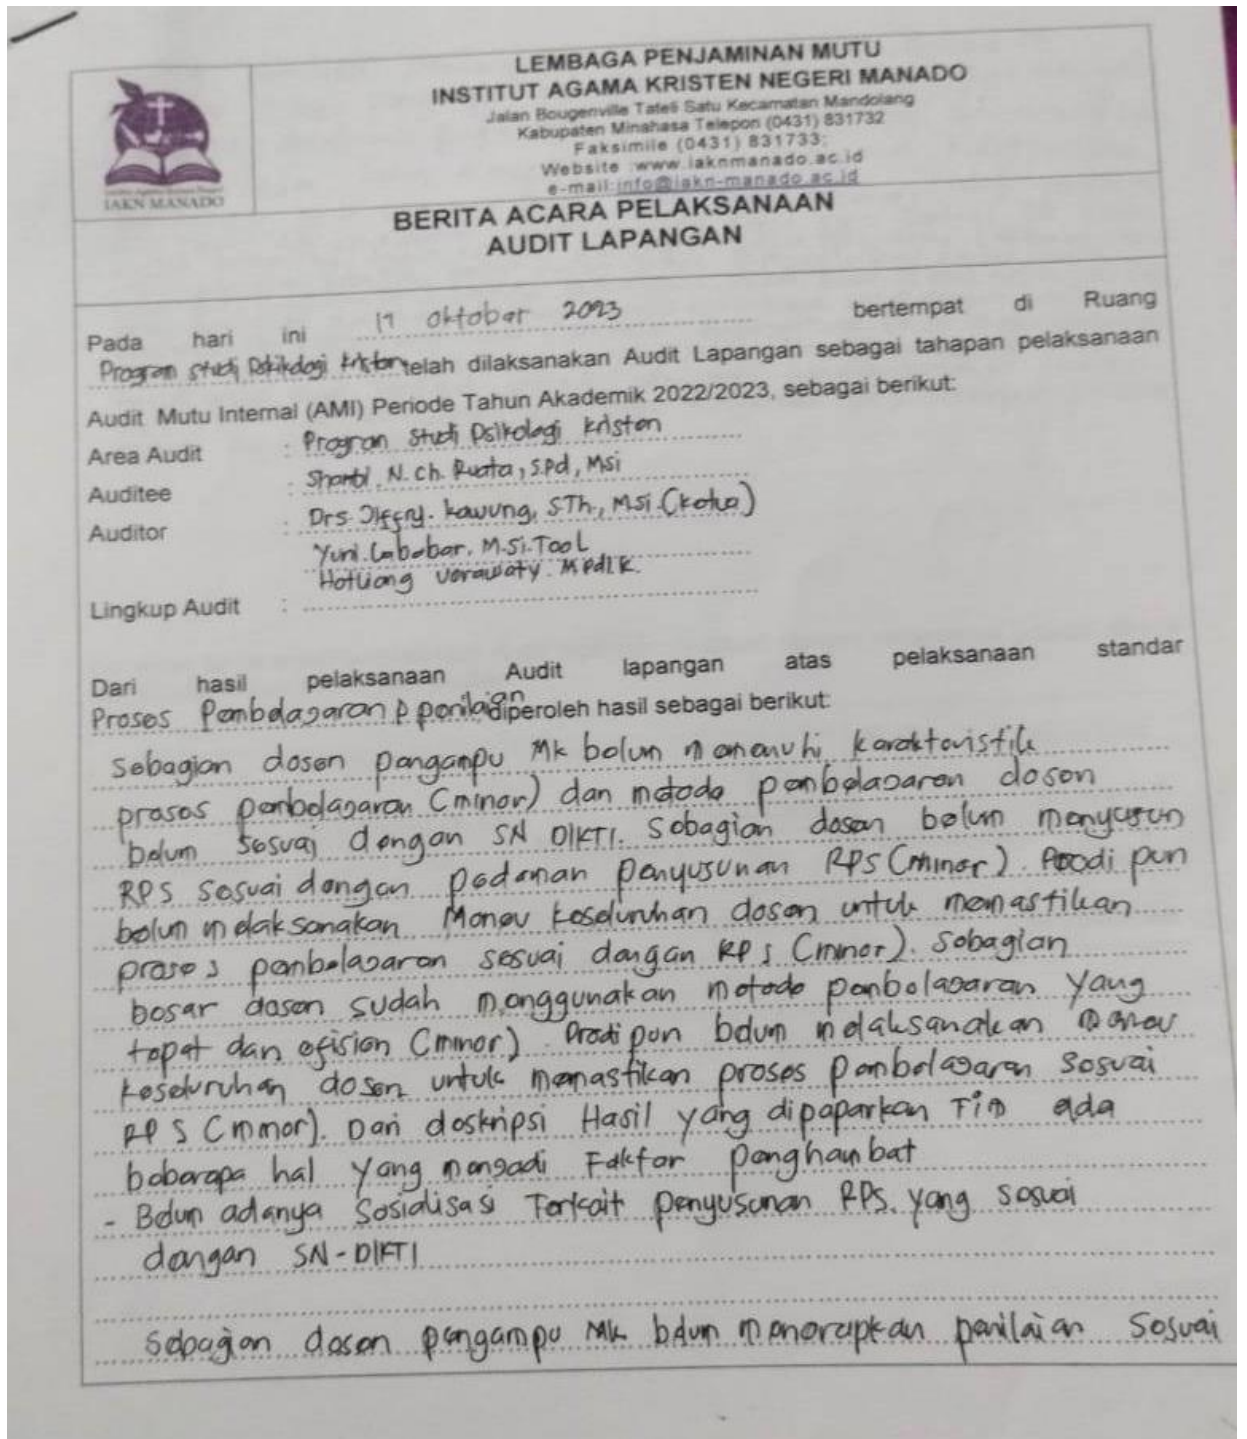 LEMBAGA PENJAMINAN MUTU
INSTITUT AGAMA KRISTEN NEGERI MANADO
Jalan Bougenville Tateli Satu Kecamatan Mandolang
Kabupaten Minahasa Telepon (0431) 831732
Faksimile (0431) 831733;
Website :www.iaknmanado.ac.id
e-mail:info@iakn-manado.ac.id
IAKN MANADO
BERITA ACARA PELAKSANAAN
AUDIT LAPANGAN
Pada hari ini 17 Oktober 2023 bertempat di Ruang
Program studi Psikologi Kristen telah dilaksanakan Audit Lapangan sebagai tahapan pelaksanaan
Audit Mutu Internal (AMI) Periode Tahun Akademik 2022/2023, sebagai berikut:
Area Audit : Program Studi Psikologi Kristen
Auditee : N. Ch. Ruata, S.Pd, Msi
Auditor : Drs. Kawung, STh, Msi (Ketua)
Yuni. Labobar. M.Si.Teol
Hotliong Verawaty. M.Pd.K.
Lingkup Audit :
Dari hasil pelaksanaan Audit lapangan atas pelaksanaan standar
Proses Pembelajaran & penilaian diperoleh hasil sebagai berikut:
Sebagian dosen pengampu MK belum memenuhi karakteristik
proses pembelajaran (minor) dan metode pembelajaran dosen
belum sesuai dengan SN DIKTI. Sebagian dosen belum menyusun
RPS sesuai dengan pedoman penyusunan RPS (minor). Prodi pun
belum melaksanakan Monev keseluruhan dosen untuk memastikan
proses pembelajaran sesuai dengan RPS (minor). Sebagian
besar dosen sudah menggunakan metode pembelajaran yang
tepat dan efisien (minor) Prodi pun belum melaksanakan monev
keseluruhan dosen untuk memastikan proses pembelajaran sesuai
RPS (minor). Dari deskripsi Hasil yang dipaparkan Tim ada
beberapa hal yang menjadi Faktor penghambat
- Belum adanya Sosialisasi Terkait penyusunan RPS. yang sesuai
dengan SN-DIKTI
Sebagian dosen pengampu MK belum menerapkan penilaian Sesuai